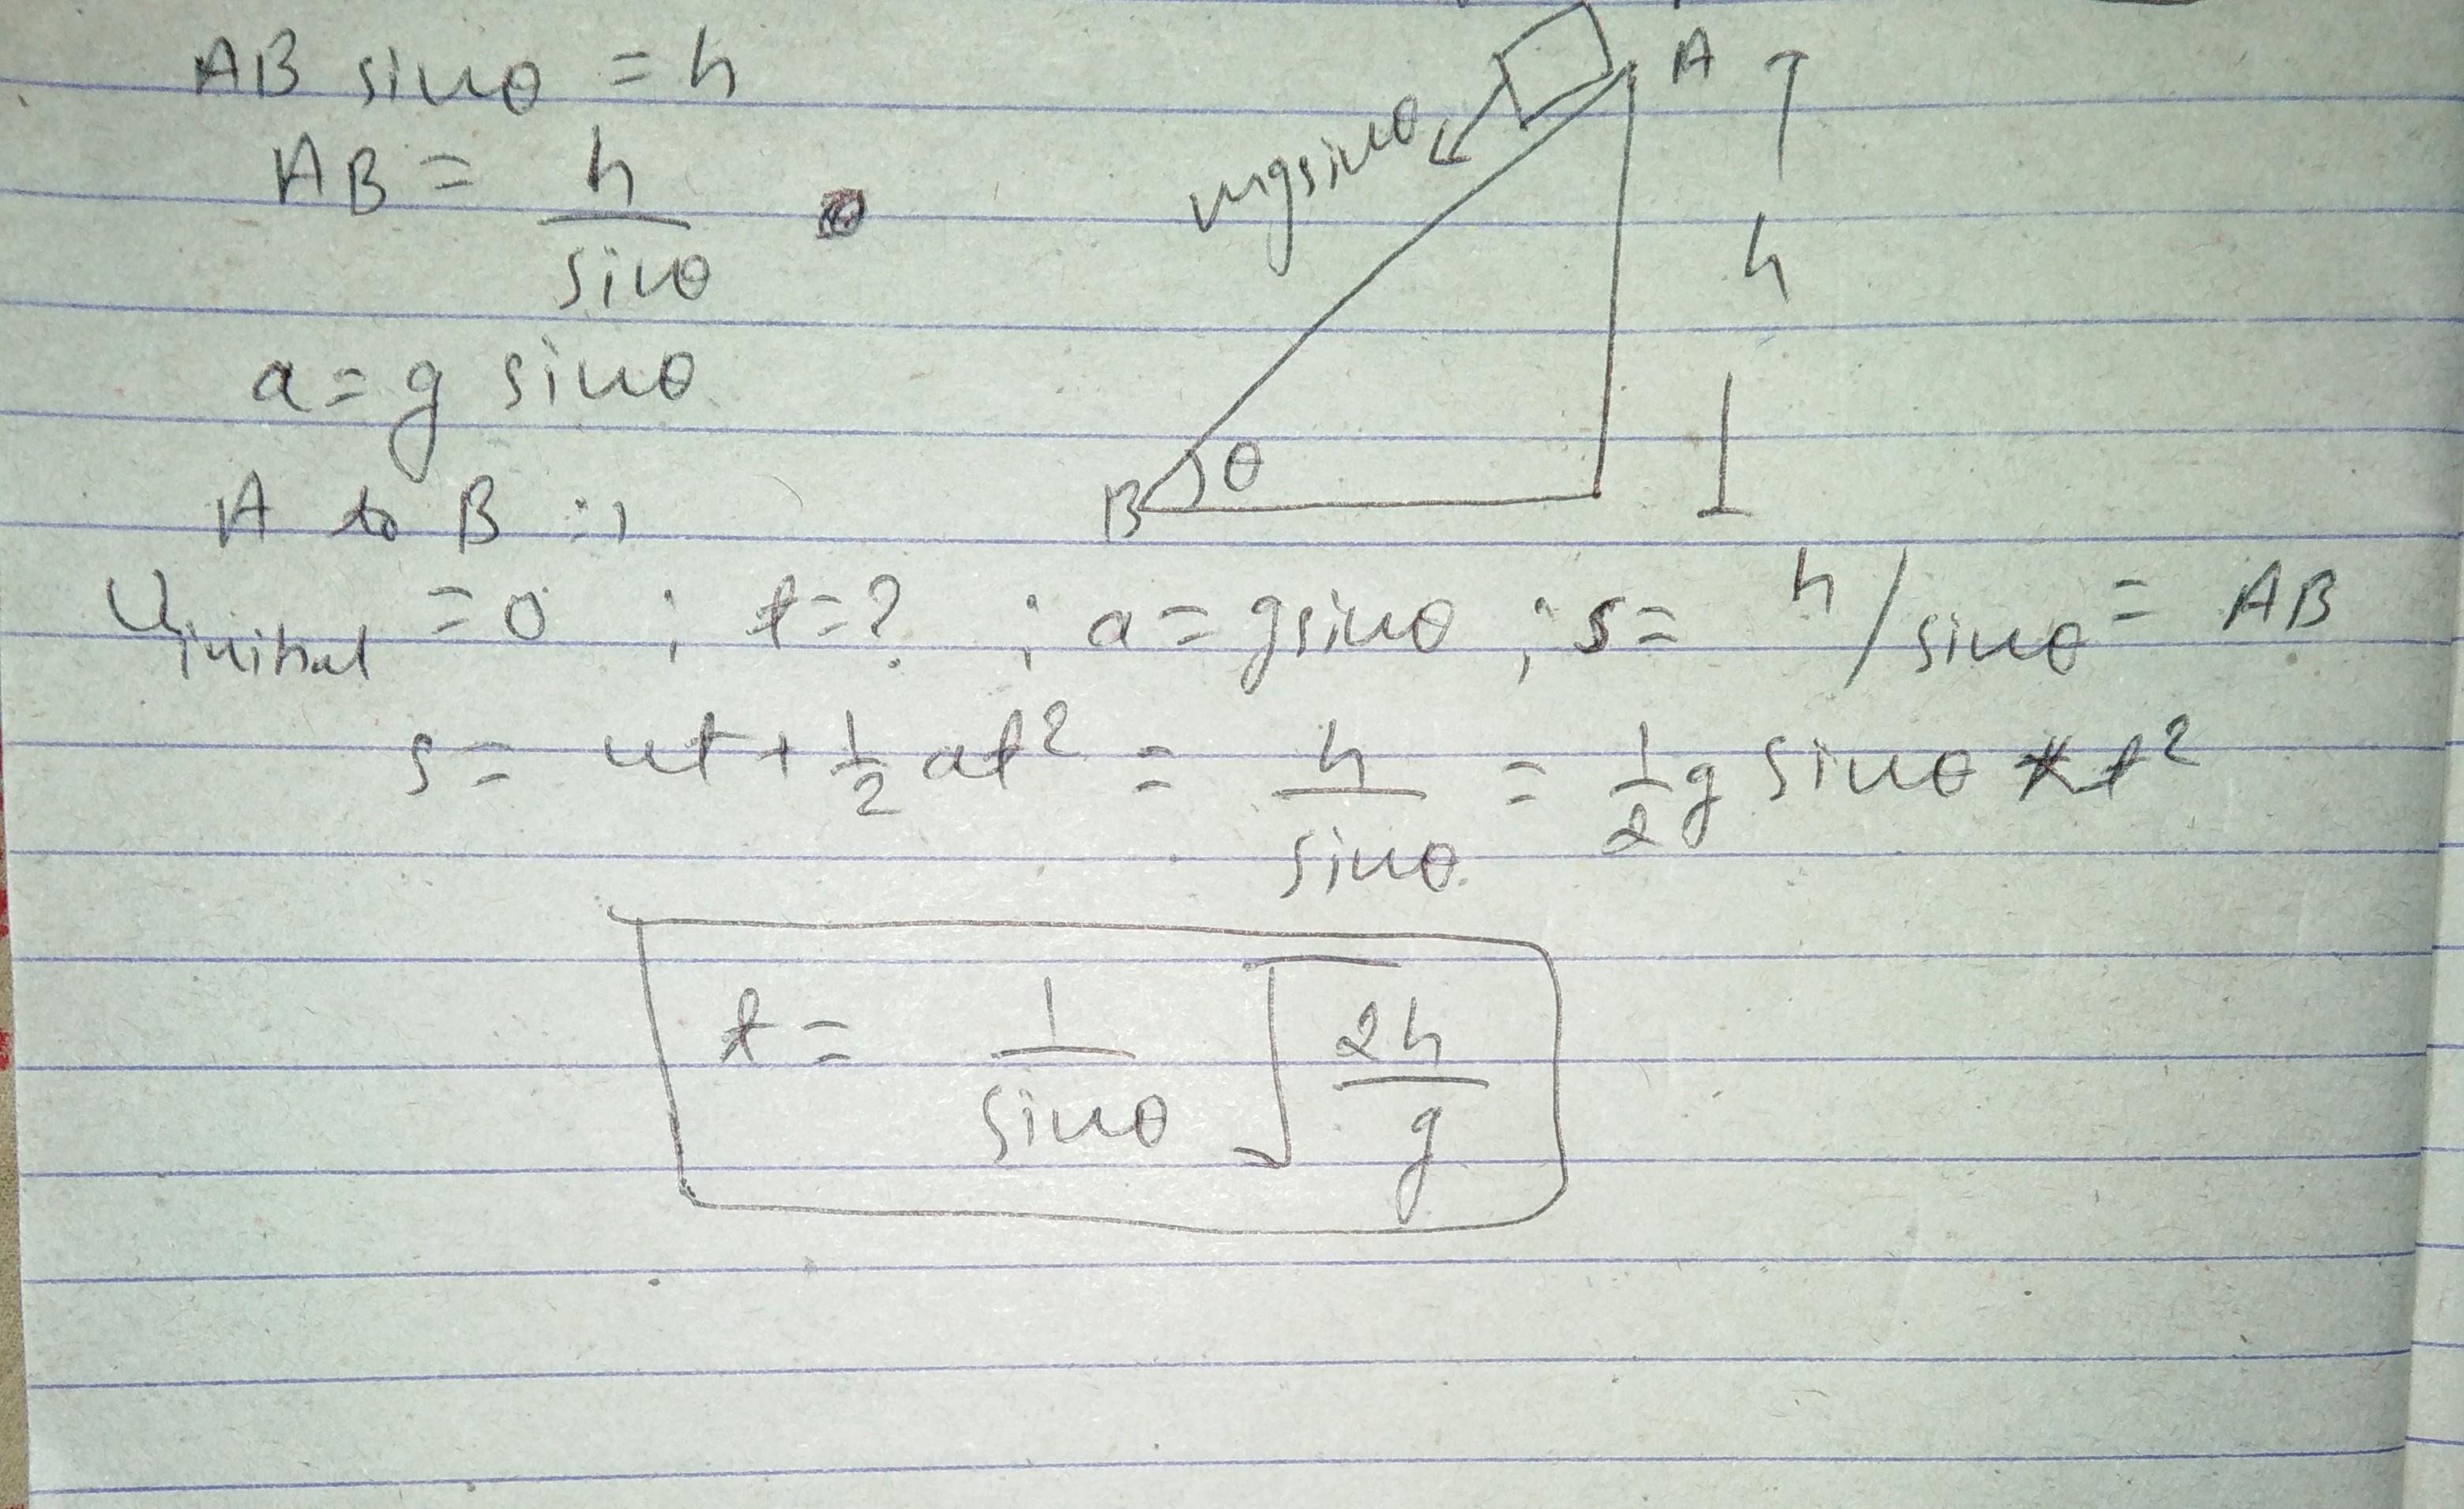 AB sinθ = h
AB = h / sinθ
a = g sinθ
A
mgsinθ
h
B θ
A to B :→
U initial = 0 ; t = ? ; a = gsinθ ; s = h / sinθ = AB
s = ut + 1/2 at² = h / sinθ = 1/2 g sinθ t²
t = 1 / sinθ √(2h / g)